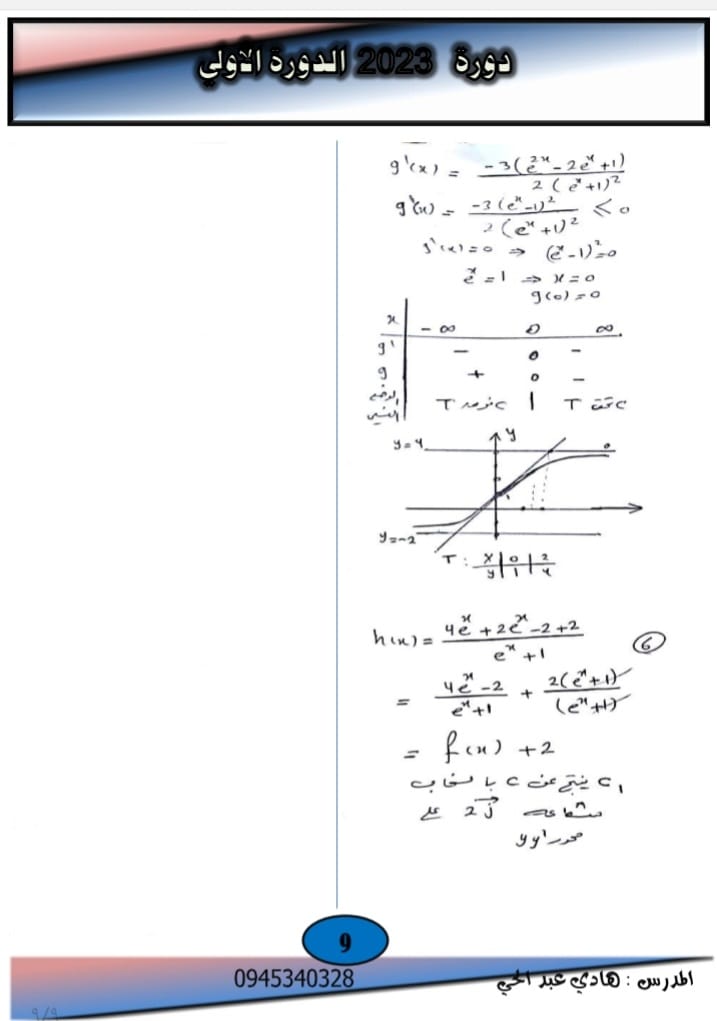 دورة 2023 الدورة الاولي
g'(x) = -3(e^{2x} - 2e^x + 1) / 2(e^x + 1)^2
g'(x) = -3(e^x - 1)^2 / 2(e^x + 1)^2 ≤ 0
g'(x) = 0 ⇒ (e^x - 1)^2 = 0
e^x = 1 ⇒ x = 0
g(0) = 0
x | -∞ 0 ∞
g' | - 0 -
g | + 0 -
الوضع النسبي | C فوق T | C تحت T
y
y=4
y=-2
T : x | 0 | 2
y | 1 | 4
h(x) = 4e^x + 2e^x - 2 + 2 / e^x + 1 ⑥
= 4e^x - 2 / e^x + 1 + 2(e^x + 1) / (e^x + 1)
= f(x) + 2
C₁ ينتج عن C بانسحاب
شعاعه 2j⃗ على
محور yy'
9
المدرس : هادي عبد الحي
0945340328
9/9